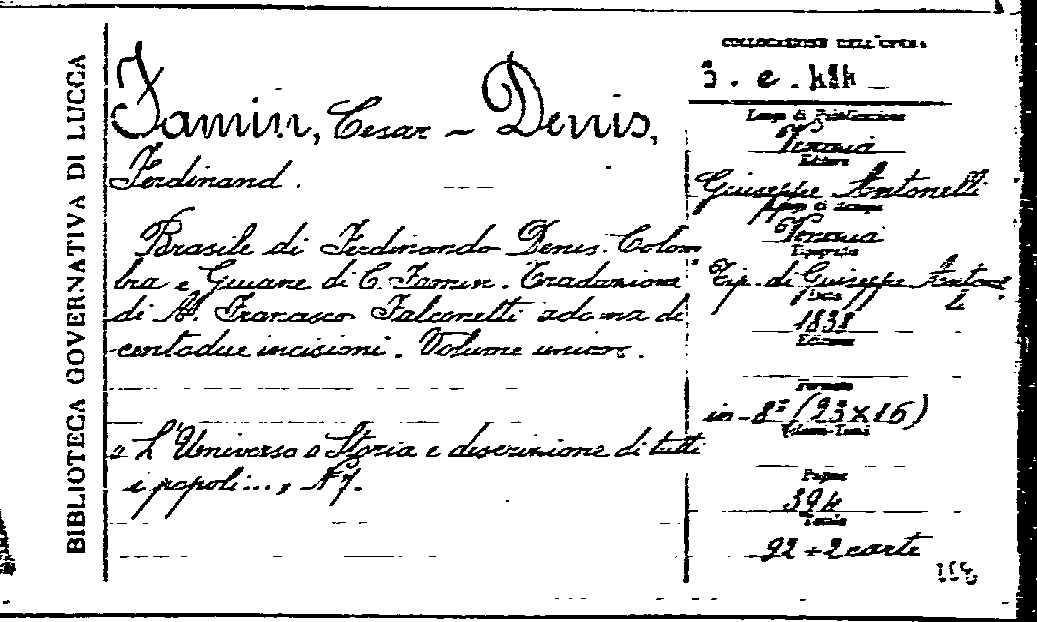 BIBLIOTECA GOVERNATIVA DI LUCCA
Famin, Cesar - Denis,
Ferdinand.
Brasile di Ferdinando Denis. Colom
bia e Guiane di C. Famin. Traduzione
di A. Francesco Falconetti adorna di
centodue incisioni. Volume unico.
L'Universo o Storia e descrizione di tutti
i popoli..., N 7.
COLLOCAZIONE DELL'OPERA
Luogo di Pubblicazione
Venezia
Editore
Giuseppe Antonelli
Luogo di Stampa
Venezia
Tipografia
Tip. di Giuseppe Anton
1838
Edizione
Formato
in-8° (23x16)
Pagine
394
Tavole
92 + 2 carte